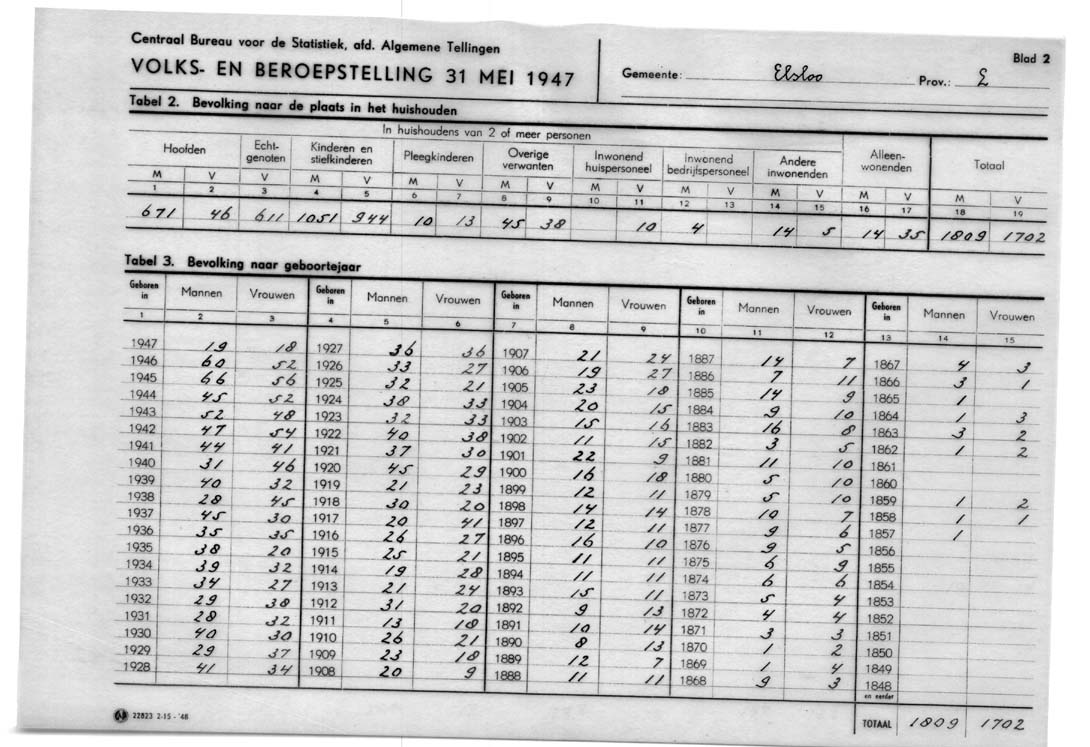 Centraal Bureau voor de Statistiek, afd. Algemene Tellingen
Blad 2
VOLKS- EN BEROEPSTELLING 31 MEI 1947
Gemeente: Elsloo Prov.: L
Tabel 2. Bevolking naar de plaats in het huishouden
In huishoudens van 2 of meer personen
Hoofden Echt-genoten Kinderen en stiefkinderen Pleegkinderen Overige verwanten Inwonend huispersoneel Inwonend bedrijfspersoneel Andere inwonenden Alleen-wonenden Totaal
M V V M V M V M V M V M V M V M V M V
1 2 3 4 5 6 7 8 9 10 11 12 13 14 15 16 17 18 19
671 46 611 1051 944 10 13 45 38 10 4 14 5 14 35 1809 1702
Tabel 3. Bevolking naar geboortejaar
Geboren in Mannen Vrouwen Geboren in Mannen Vrouwen Geboren in Mannen Vrouwen Geboren in Mannen Vrouwen Geboren in Mannen Vrouwen
1 2 3 4 5 6 7 8 9 10 11 12 13 14 15
1947 19 18 1927 36 36 1907 21 24 1887 14 7 1867 4 3
1946 60 52 1926 33 27 1906 19 27 1886 7 11 1866 3 1
1945 66 56 1925 32 21 1905 23 18 1885 14 9 1865 1
1944 45 52 1924 38 33 1904 20 15 1884 9 10 1864 1 3
1943 52 48 1923 32 33 1903 15 16 1883 16 8 1863 3 2
1942 47 54 1922 40 38 1902 11 15 1882 3 5 1862 1 2
1941 44 41 1921 37 30 1901 22 9 1881 11 10 1861
1940 31 46 1920 45 29 1900 16 18 1880 5 10 1860
1939 40 32 1919 21 23 1899 12 11 1879 5 10 1859 1 2
1938 28 45 1918 30 20 1898 14 14 1878 10 7 1858 1 1
1937 45 30 1917 20 41 1897 12 11 1877 9 6 1857 1
1936 35 35 1916 26 27 1896 16 10 1876 9 5 1856
1935 38 20 1915 25 21 1895 11 11 1875 6 9 1855
1934 39 32 1914 19 28 1894 11 11 1874 6 6 1854
1933 34 27 1913 21 24 1893 15 11 1873 5 4 1853
1932 29 38 1912 31 20 1892 9 13 1872 4 4 1852
1931 28 32 1911 13 18 1891 10 14 1871 3 3 1851
1930 40 30 1910 26 21 1890 8 13 1870 1 2 1850
1929 29 37 1909 23 18 1889 12 7 1869 1 4 1849
1928 41 34 1908 20 9 1888 11 11 1868 9 3 1848
en eerder
22823 2-15 - '48
TOTAAL 1809 1702